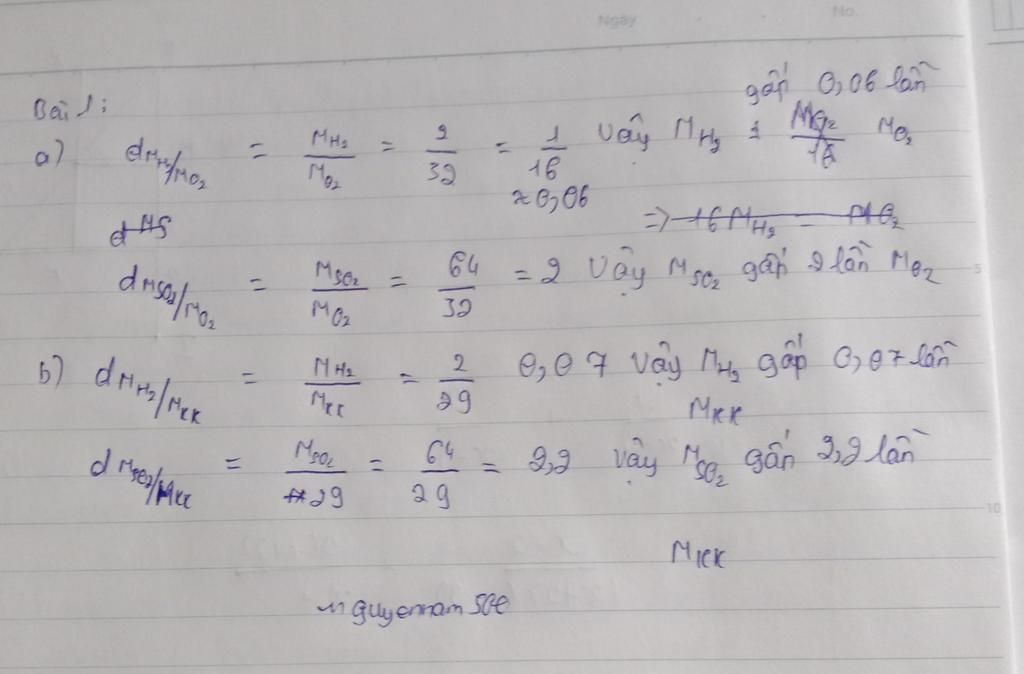 Ngày No.
gấp 0,06 lần
Bài 1:
a) d M_H₂/M_O₂ = M_H₂/M_O₂ = 2/32 = 1/16 Vậy M_H₂ = M_O₂/16 M_O₂
≈ 0,06 => 16 M_H₂ = M O₂
d MS
d M_SO₂/M_O₂ = M_SO₂/M_O₂ = 64/32 = 2 Vậy M_SO₂ gấp 2 lần M_O₂
5
b) d M_H₂/M_KK = M_H₂/M_KK = 2/29 0,07 Vậy M_H₂ gấp 0,07 lần
M_KK
d M_SO₂/M_KK = M_SO₂/29 = 64/29 = 2,2 Vậy M_SO₂ gấp 2,2 lần
10
M_KK